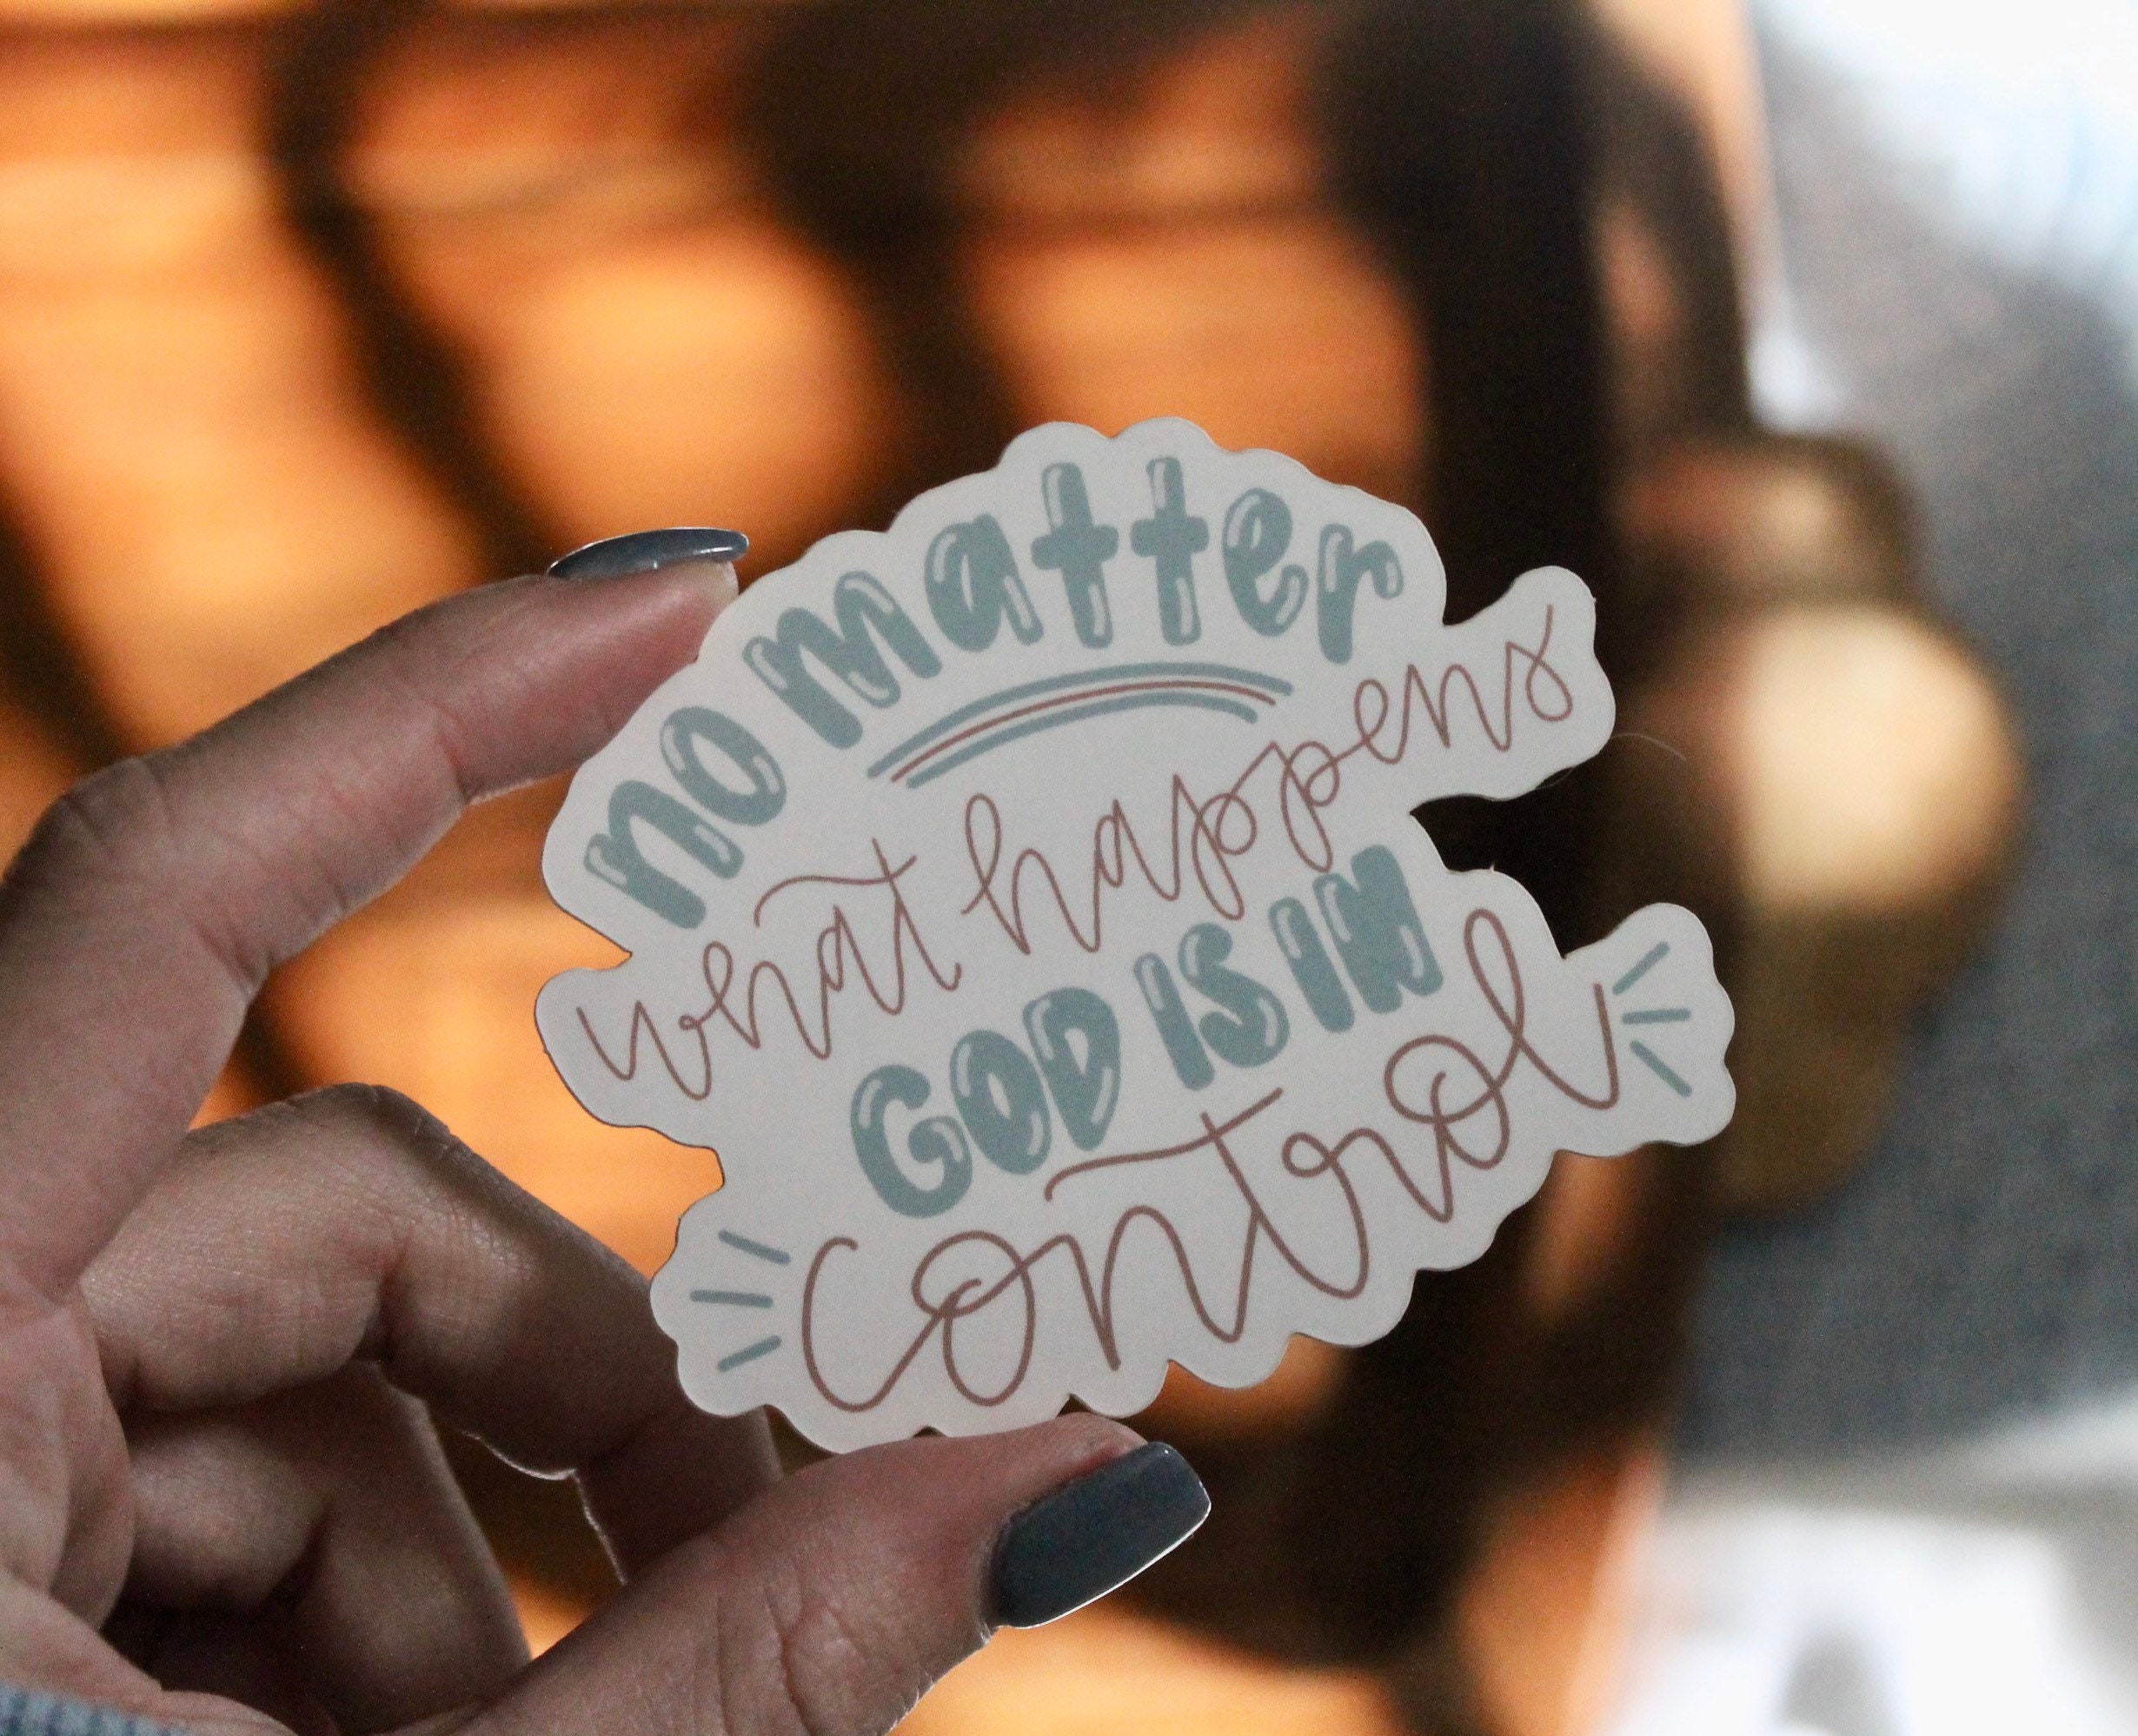 no matter
what happens
GOD IS IN
control